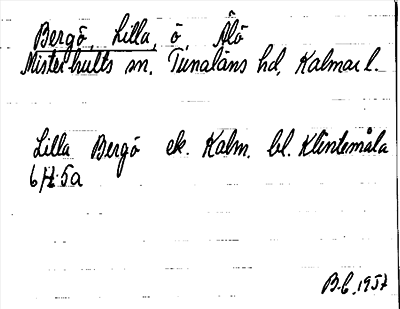 Bergö, Lilla, ö, Älö
Misterhults sn. Tunaläns hd, Kalmar l.
Lilla Bergö ek. Kalm. bl. Klintemåla
6 H 5a
B.C. 1957